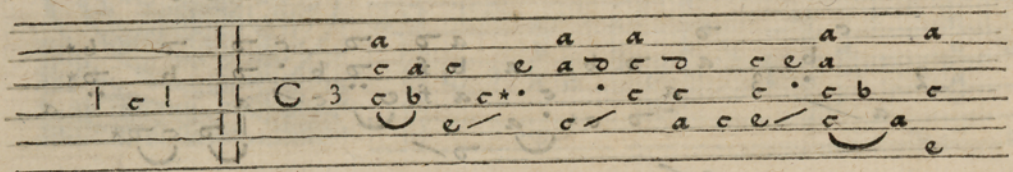 a a a a a
c a c e a d c d c e a
| c | C 3 c b c * . . c c c . c b c
e / c / a c e / c a
e